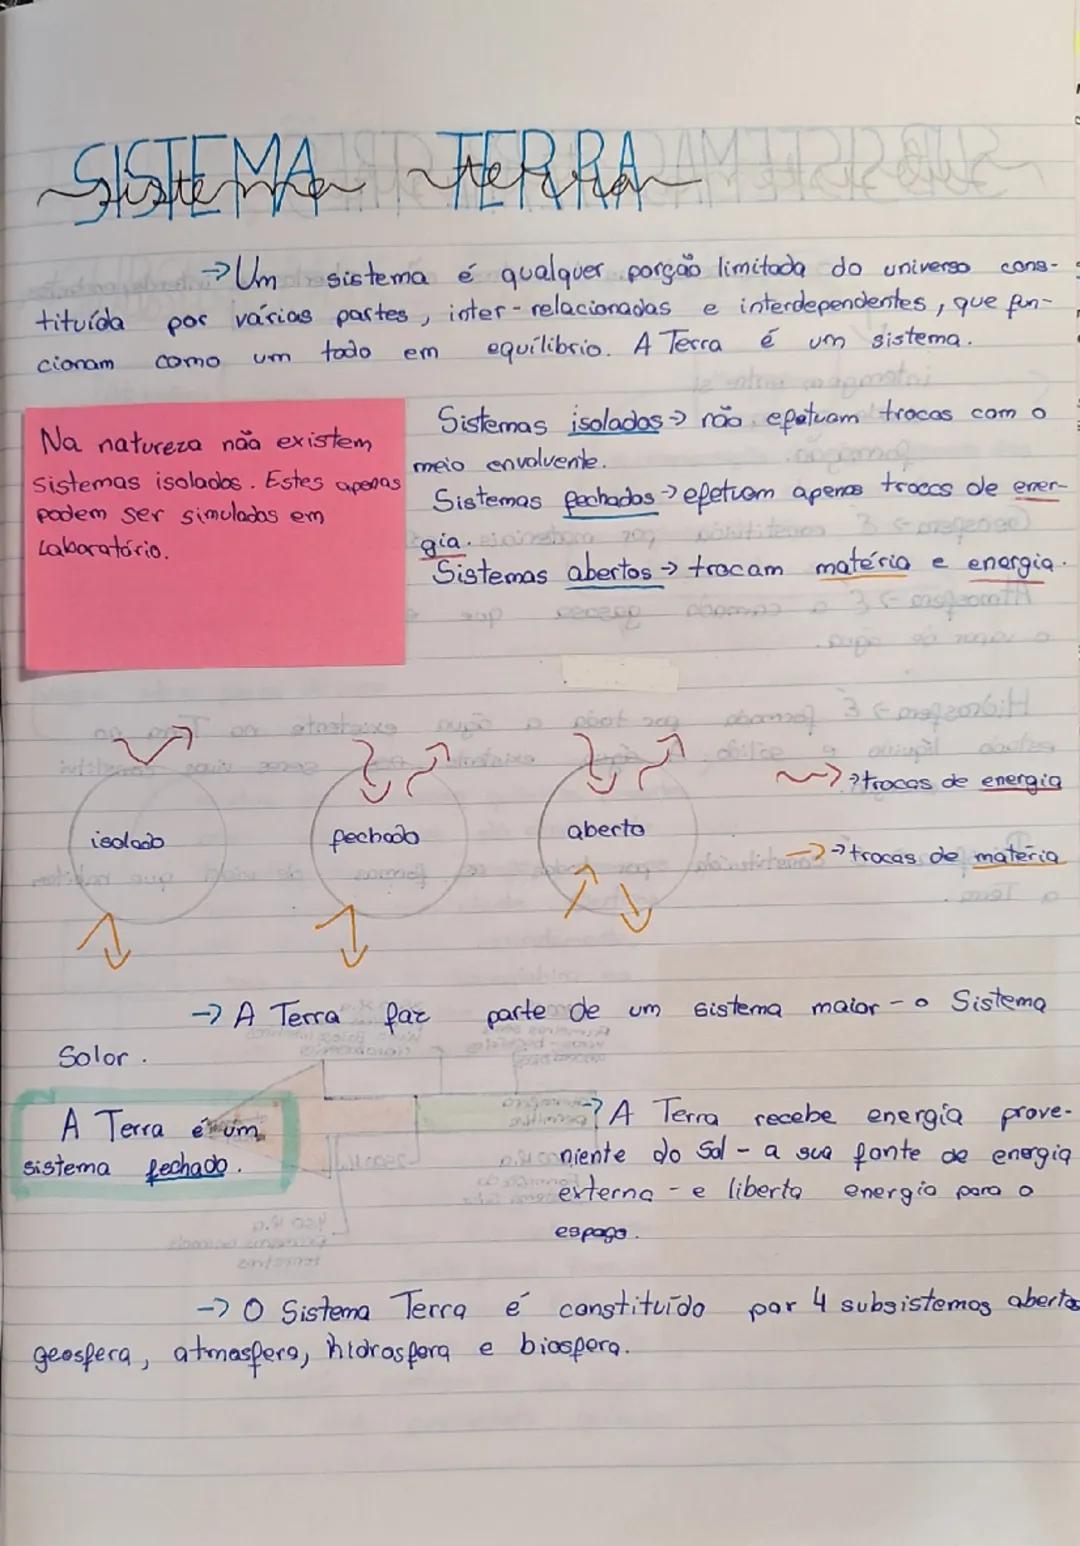 SISTEMA TERRA
sistema terra
→ Um sistema é qualquer porção limitada do universo cons-
tituída por várias partes, inter-relacionadas e interdependentes, que fun-
cionam como um todo em equilíbrio. A Terra é um sistema.
Na natureza não existem
sistemas isolados. Estes apenas
podem ser simulados em
Laboratório.
Sistemas isolados → não efetuam trocas com o
meio envolvente.
Sistemas fechados → efetuam apenas trocas de ener-
gia.
Sistemas abertos → trocam matéria e energia.
isolado
fechado
aberto
→ trocas de energia
→ trocas de matéria
→ A Terra faz parte de um sistema maior - o Sistema
Solar.
A Terra é um
sistema fechado.
→ A Terra recebe energia prove-
niente do Sol - a sua fonte de energia
externa - e liberta energia para o
espaço.
→ O Sistema Terra é constituído por 4 subsistemas abertos
geosfera, atmosfera, hidrosfera e biosfera.